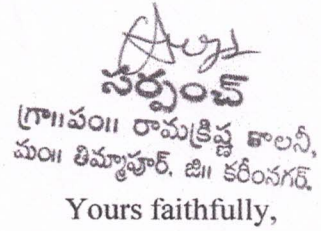 సర్పంచ్
గ్రా॥పం॥ రామక్రిష్ణ కాలనీ,
మం॥ తిమ్మాపూర్, జి॥ కరీంనగర్.
Yours faithfully,